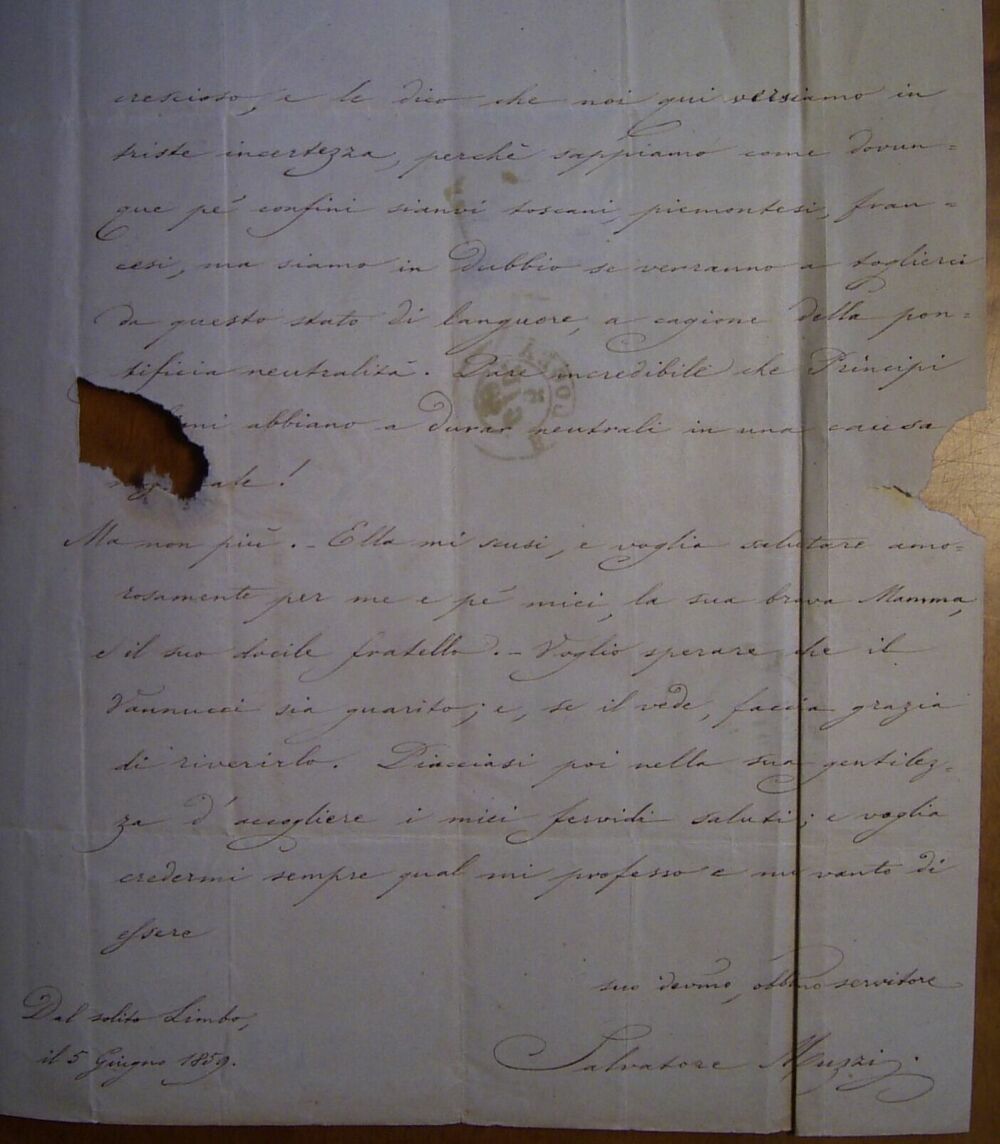 crescioso, e le dico che noi qui versiamo in
triste incertezza, perchè sappiamo come dovun=
que pe' confini sianvi toscani, piemontesi, fran=
cesi, ma siamo in dubbio se verranno a toglierci
da questo stato di languore, a cagione della pon=
tificia neutralità. Pare incredibile che Principi
ani abbiano a durar neutrali in una causa
ale!
Ma non più. - Ella mi scusi, e voglia salutare amo=
rosamente per me e pe' miei, la sua brava Mamma,
e il suo docile fratello. - Voglio sperare che il
Vannucci sia guarito; e, se il vede, faccia grazia
di riverirlo. Piacciasi poi nella sua gentilez=
za d'accogliere i miei fervidi saluti; e voglia
credermi sempre qual mi professo e mi vanto di
essere
suo devmo, obbmo servitore
Salvatore Muzzi.
Dal solito Limbo,
il 5 Giugno 1859.